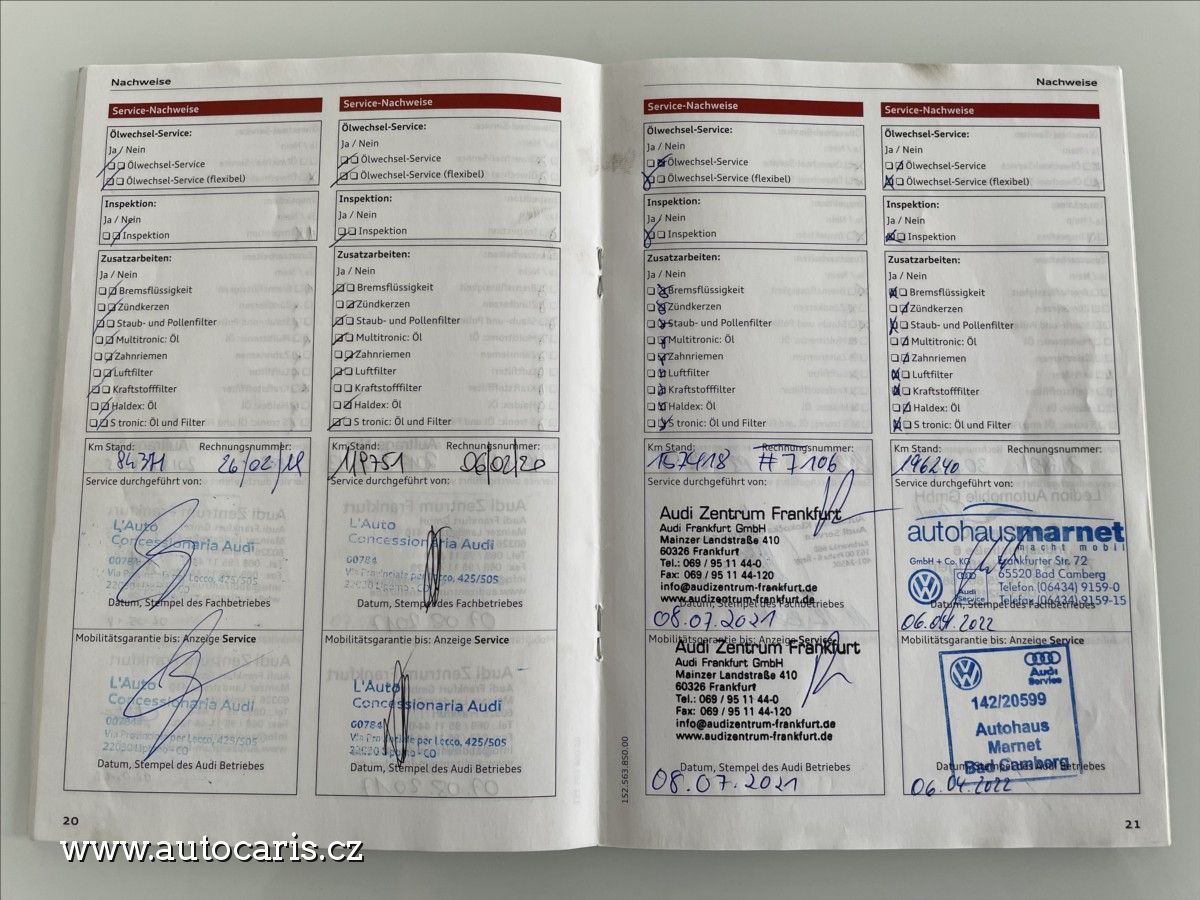 Nachweise
Service-Nachweise
Ölwechsel-Service:
Ja / Nein
Ölwechsel-Service
Ölwechsel-Service (flexibel)
Inspektion:
Ja / Nein
Inspektion
Zusatzarbeiten:
Ja / Nein
Bremsflüssigkeit
Zündkerzen
Staub- und Pollenfilter
Multitronic: Öl
Zahnriemen
Luftfilter
Kraftstofffilter
Haldex: Öl
S tronic: Öl und Filter
Km Stand: Rechnungsnummer:
84371 26/02/19
Service durchgeführt von:
L'Auto
Concessionaria Audi
00784
Via Provinciale per Lecco, 425/505
Datum, Stempel des Fachbetriebes
Mobilitätsgarantie bis: Anzeige Service
L'Auto
Concessionaria Audi
00784
Via Provinciale per Lecco, 425/505
22030 Lipomo - CO
Datum, Stempel des Audi Betriebes
20
Service-Nachweise
Ölwechsel-Service:
Ja / Nein
Ölwechsel-Service
Ölwechsel-Service (flexibel)
Inspektion:
Ja / Nein
Inspektion
Zusatzarbeiten:
Ja / Nein
Bremsflüssigkeit
Zündkerzen
Staub- und Pollenfilter
Multitronic: Öl
Zahnriemen
Luftfilter
Kraftstofffilter
Haldex: Öl
S tronic: Öl und Filter
Km Stand: Rechnungsnummer:
119751 06/02/20
Service durchgeführt von:
L'Auto
Concessionaria Audi
00784
Via Provinciale per Lecco, 425/505
Datum, Stempel des Fachbetriebes
Mobilitätsgarantie bis: Anzeige Service
L'Auto
Concessionaria Audi
00784
Via Provinciale per Lecco, 425/505
22030 Lipomo - CO
Datum, Stempel des Audi Betriebes
Nachweise
Service-Nachweise
Ölwechsel-Service:
Ja / Nein
Ölwechsel-Service
Ölwechsel-Service (flexibel)
Inspektion:
Ja / Nein
Inspektion
Zusatzarbeiten:
Ja / Nein
Bremsflüssigkeit
Zündkerzen
Staub- und Pollenfilter
Multitronic: Öl
Zahnriemen
Luftfilter
Kraftstofffilter
Haldex: Öl
S tronic: Öl und Filter
Km Stand: Rechnungsnummer:
157418 #7106
Service durchgeführt von:
Audi Zentrum Frankfurt
Audi Frankfurt GmbH
Mainzer Landstraße 410
60326 Frankfurt
Tel.: 069 / 95 11 44-0
Fax: 069 / 95 11 44-120
info@audizentrum-frankfurt.de
www.audizentrum-frankfurt.de
Datum, Stempel des Fachbetriebes
08.07.2021
Mobilitätsgarantie bis: Anzeige Service
Audi Zentrum Frankfurt
Audi Frankfurt GmbH
Mainzer Landstraße 410
60326 Frankfurt
Tel.: 069 / 95 11 44-0
Fax: 069 / 95 11 44-120
info@audizentrum-frankfurt.de
www.audizentrum-frankfurt.de
Datum, Stempel des Audi Betriebes
08.07.2021
152.563.850.00
Service-Nachweise
Ölwechsel-Service:
Ja / Nein
Ölwechsel-Service
Ölwechsel-Service (flexibel)
Inspektion:
Ja / Nein
Inspektion
Zusatzarbeiten:
Ja / Nein
Bremsflüssigkeit
Zündkerzen
Staub- und Pollenfilter
Multitronic: Öl
Zahnriemen
Luftfilter
Kraftstofffilter
Haldex: Öl
S tronic: Öl und Filter
Km Stand: Rechnungsnummer:
196240
Service durchgeführt von:
autohausmarnet
macht mobil
GmbH + Co. KG Frankfurter Str. 72
65520 Bad Camberg
Audi Telefon (06434) 9159-0
Service Telefax (06434) 9159-15
Datum, Stempel des Fachbetriebes
06.04.2022
Mobilitätsgarantie bis: Anzeige Service
Audi
Service
142/20599
Autohaus
Marnet
Bad Camberg
Datum, Stempel des Audi Betriebes
06.04.2022
21
www.autocaris.cz